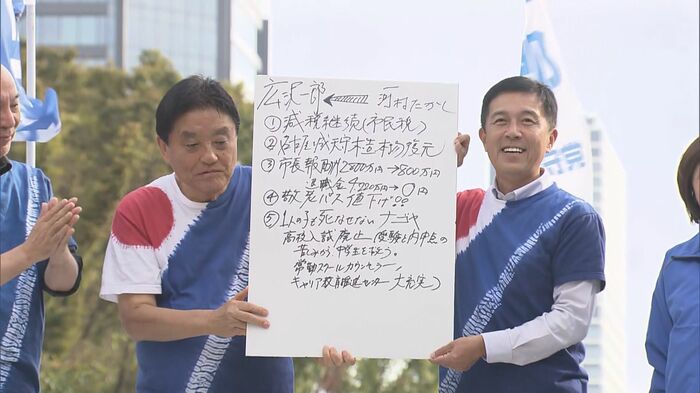 広沢一郎 ← 河村たかし
① 減税継続(市民税)
② 名古屋城天守木造復元
③ 市長報酬 2800万円→800万円
退職金 4200万円→0円
④ 敬老パス値下げ!!
⑤ 1人の子も死なせないナゴヤ
高校入試廃止(受験と内申点の
苦しみから、中学生を救う。
常勤スクールカウンセラー、
キャリア教育推進センター大充実)